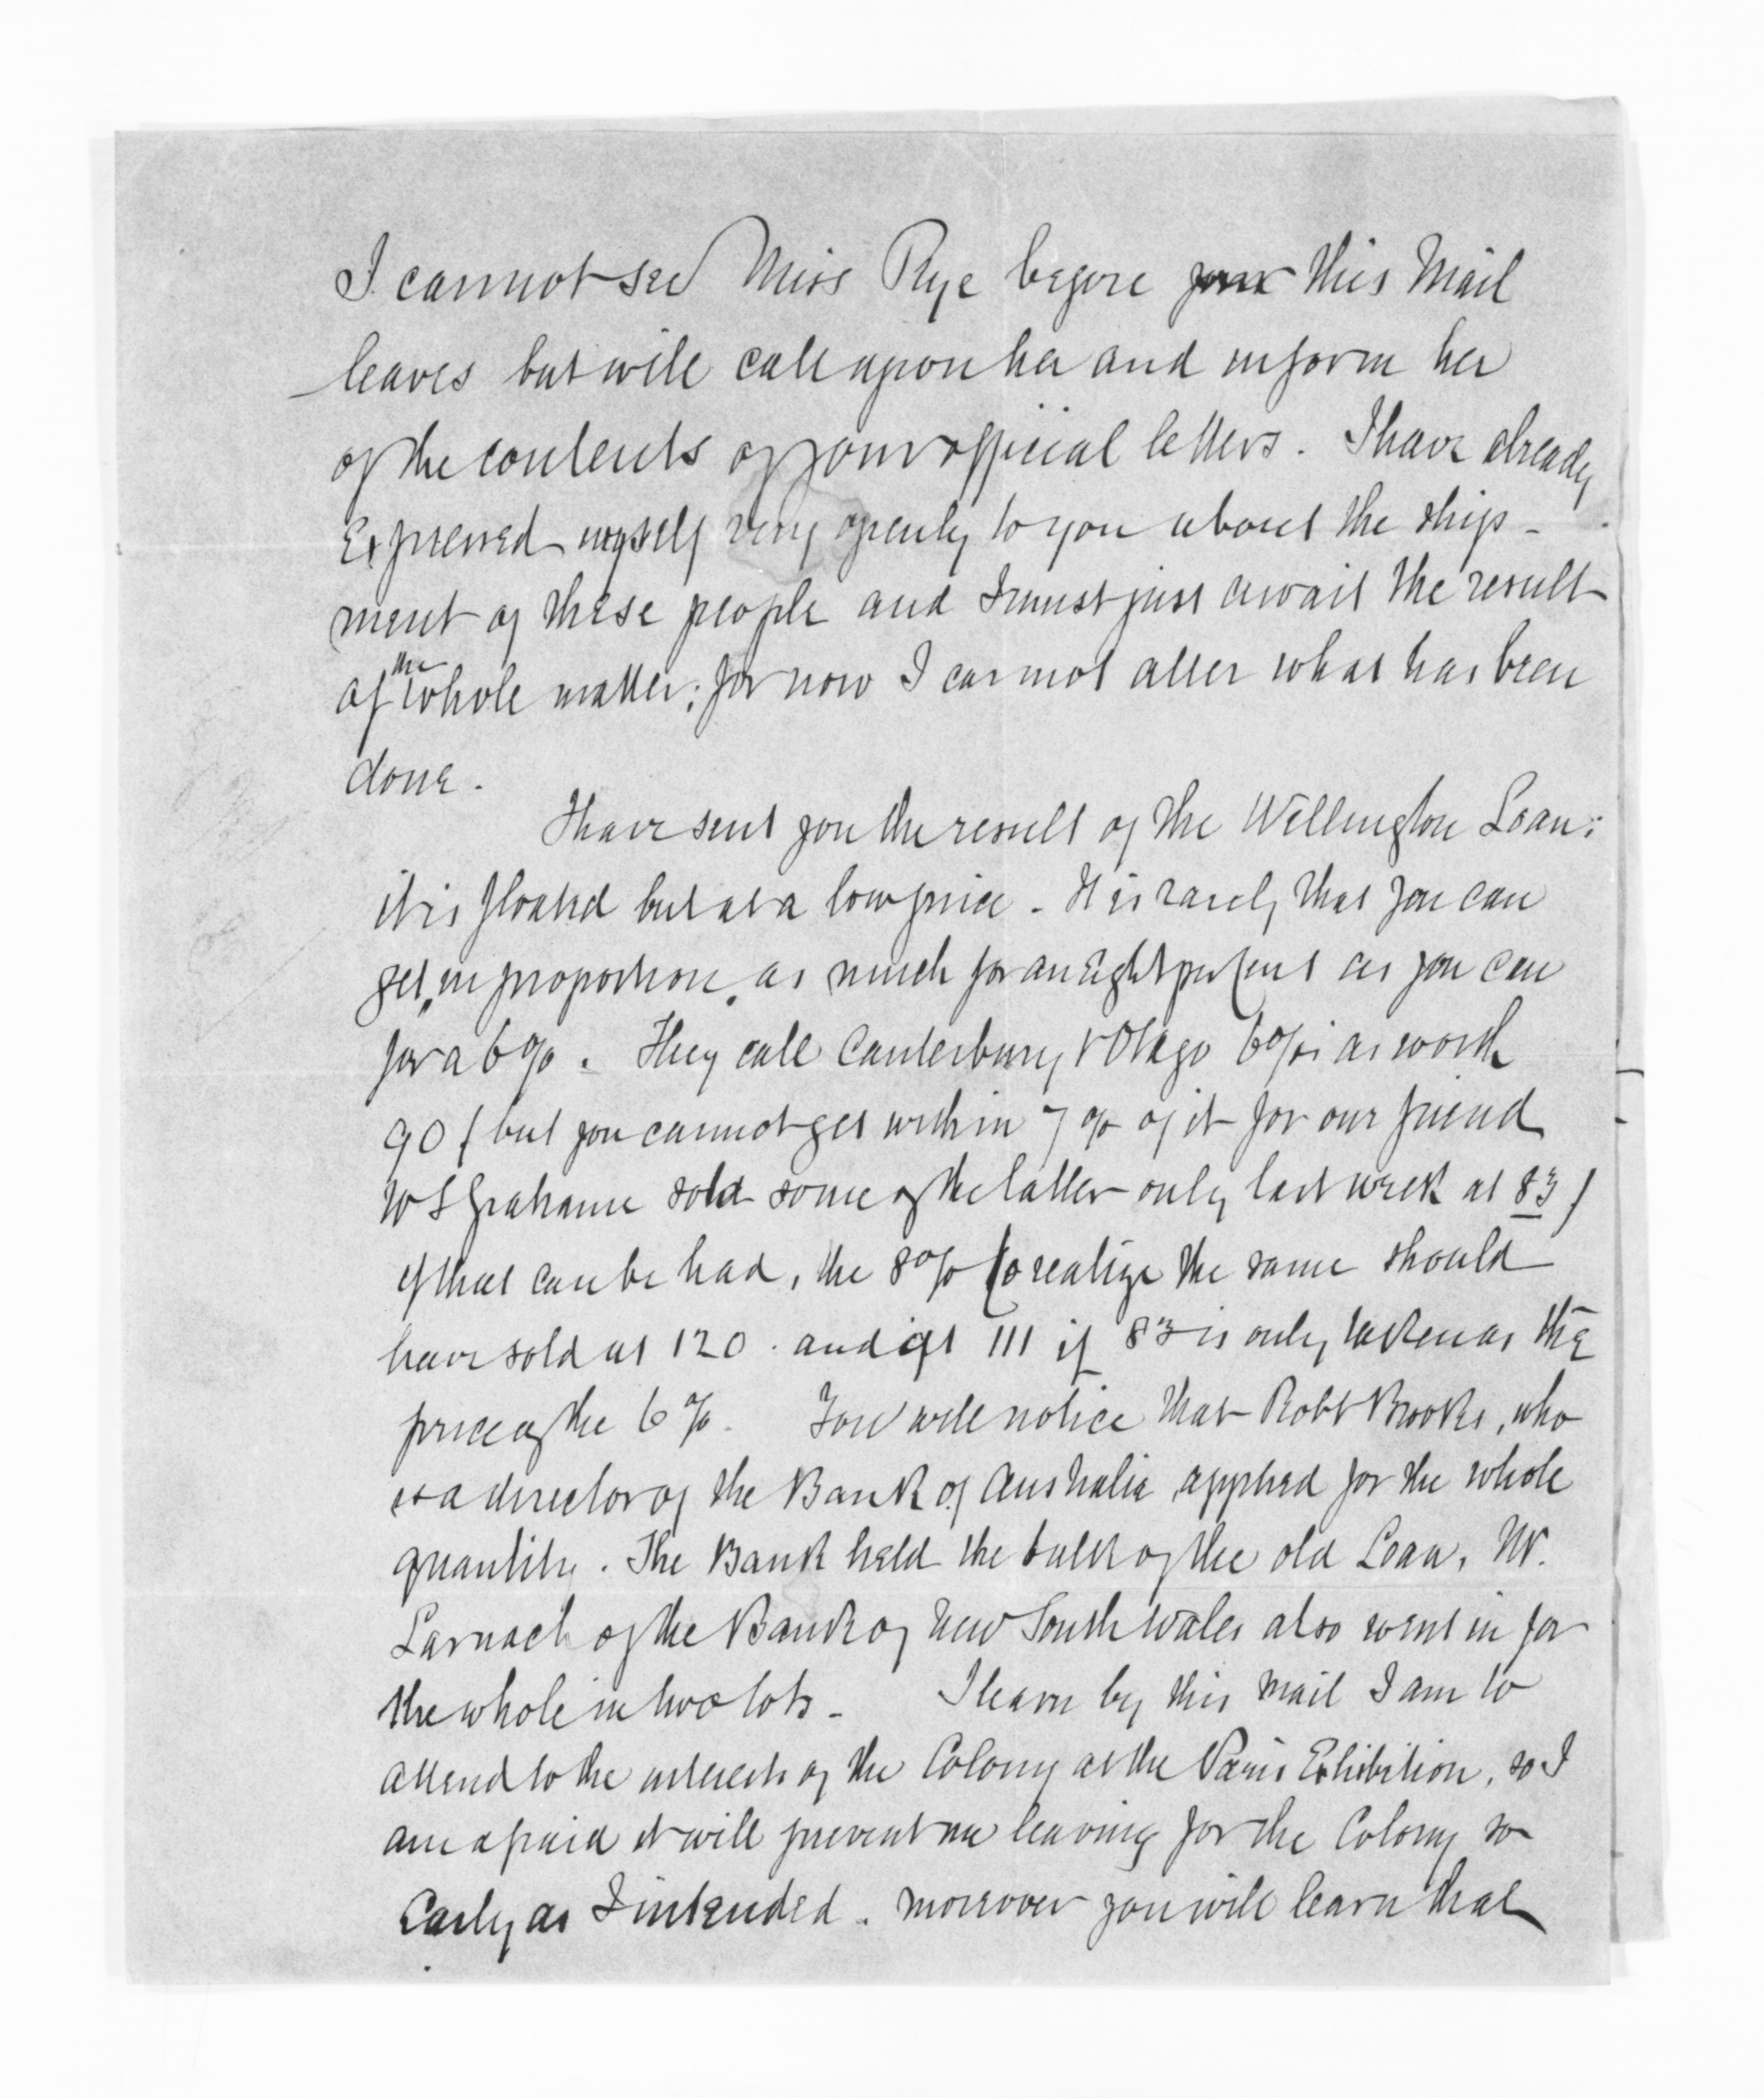 I cannot see Miss Rye before this Mail
leaves but will call upon her and inform her
of the contents of your official letters. I have already
Expressed myself very openly to you about the ship-
ment of these people and I must just await the result
of the whole matter; for now I cannot alter what has been
done.
I have sent you the result of the Wellington Loan:
it is floated but at a low price - It is rarely that you can
get, in proportion, as much for an Eight per Cent as you can
for a 6%. They call Canterbury & Otago 6%s as worth
90 ( but you cannot get within 7% of it for our friend
W S Grahame sold some of the latter only last week at 83 )
if that can be had, the 8% to realize the same should
have sold at 120. and at 111 if 83 is only taken as the
price of the 6%. You will notice that Robt Brooks, who
is a director of the Bank of Australia applied for the whole
quantity. The Bank held the bulk of the old Loan, Mr.
Larnach of the Bank of New South Wales also went in for
the whole in two lots - I learn by this Mail I am to
attend to the interests of the Colony at the Paris Exhibition, so I
am afraid it will prevent me leaving for the Colony so
Early as I intended. Moreover you will learn that